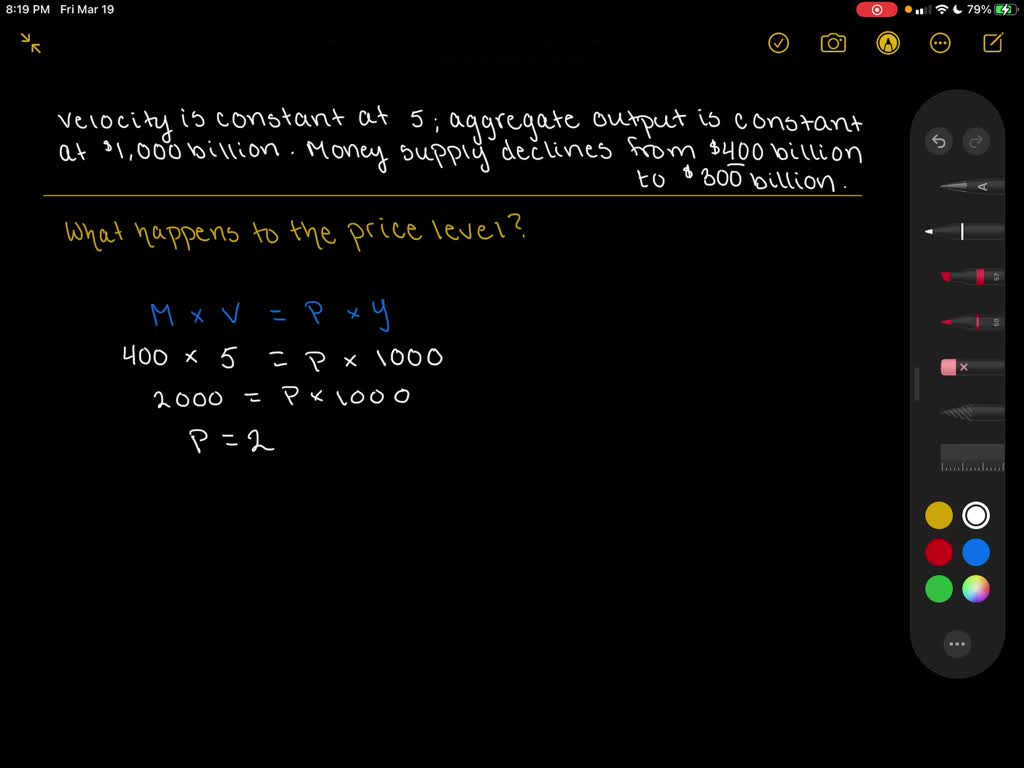 8:19 PM Fri Mar 19
79%
velocity is constant at 5; aggregate output is constant
at $1,000 billion. Money supply declines from $400 billion
to $300 billion.
What happens to the price level?
M × V = P × Y
400 × 5 = P × 1000
2000 = P × 1000
P = 2
A
57
50